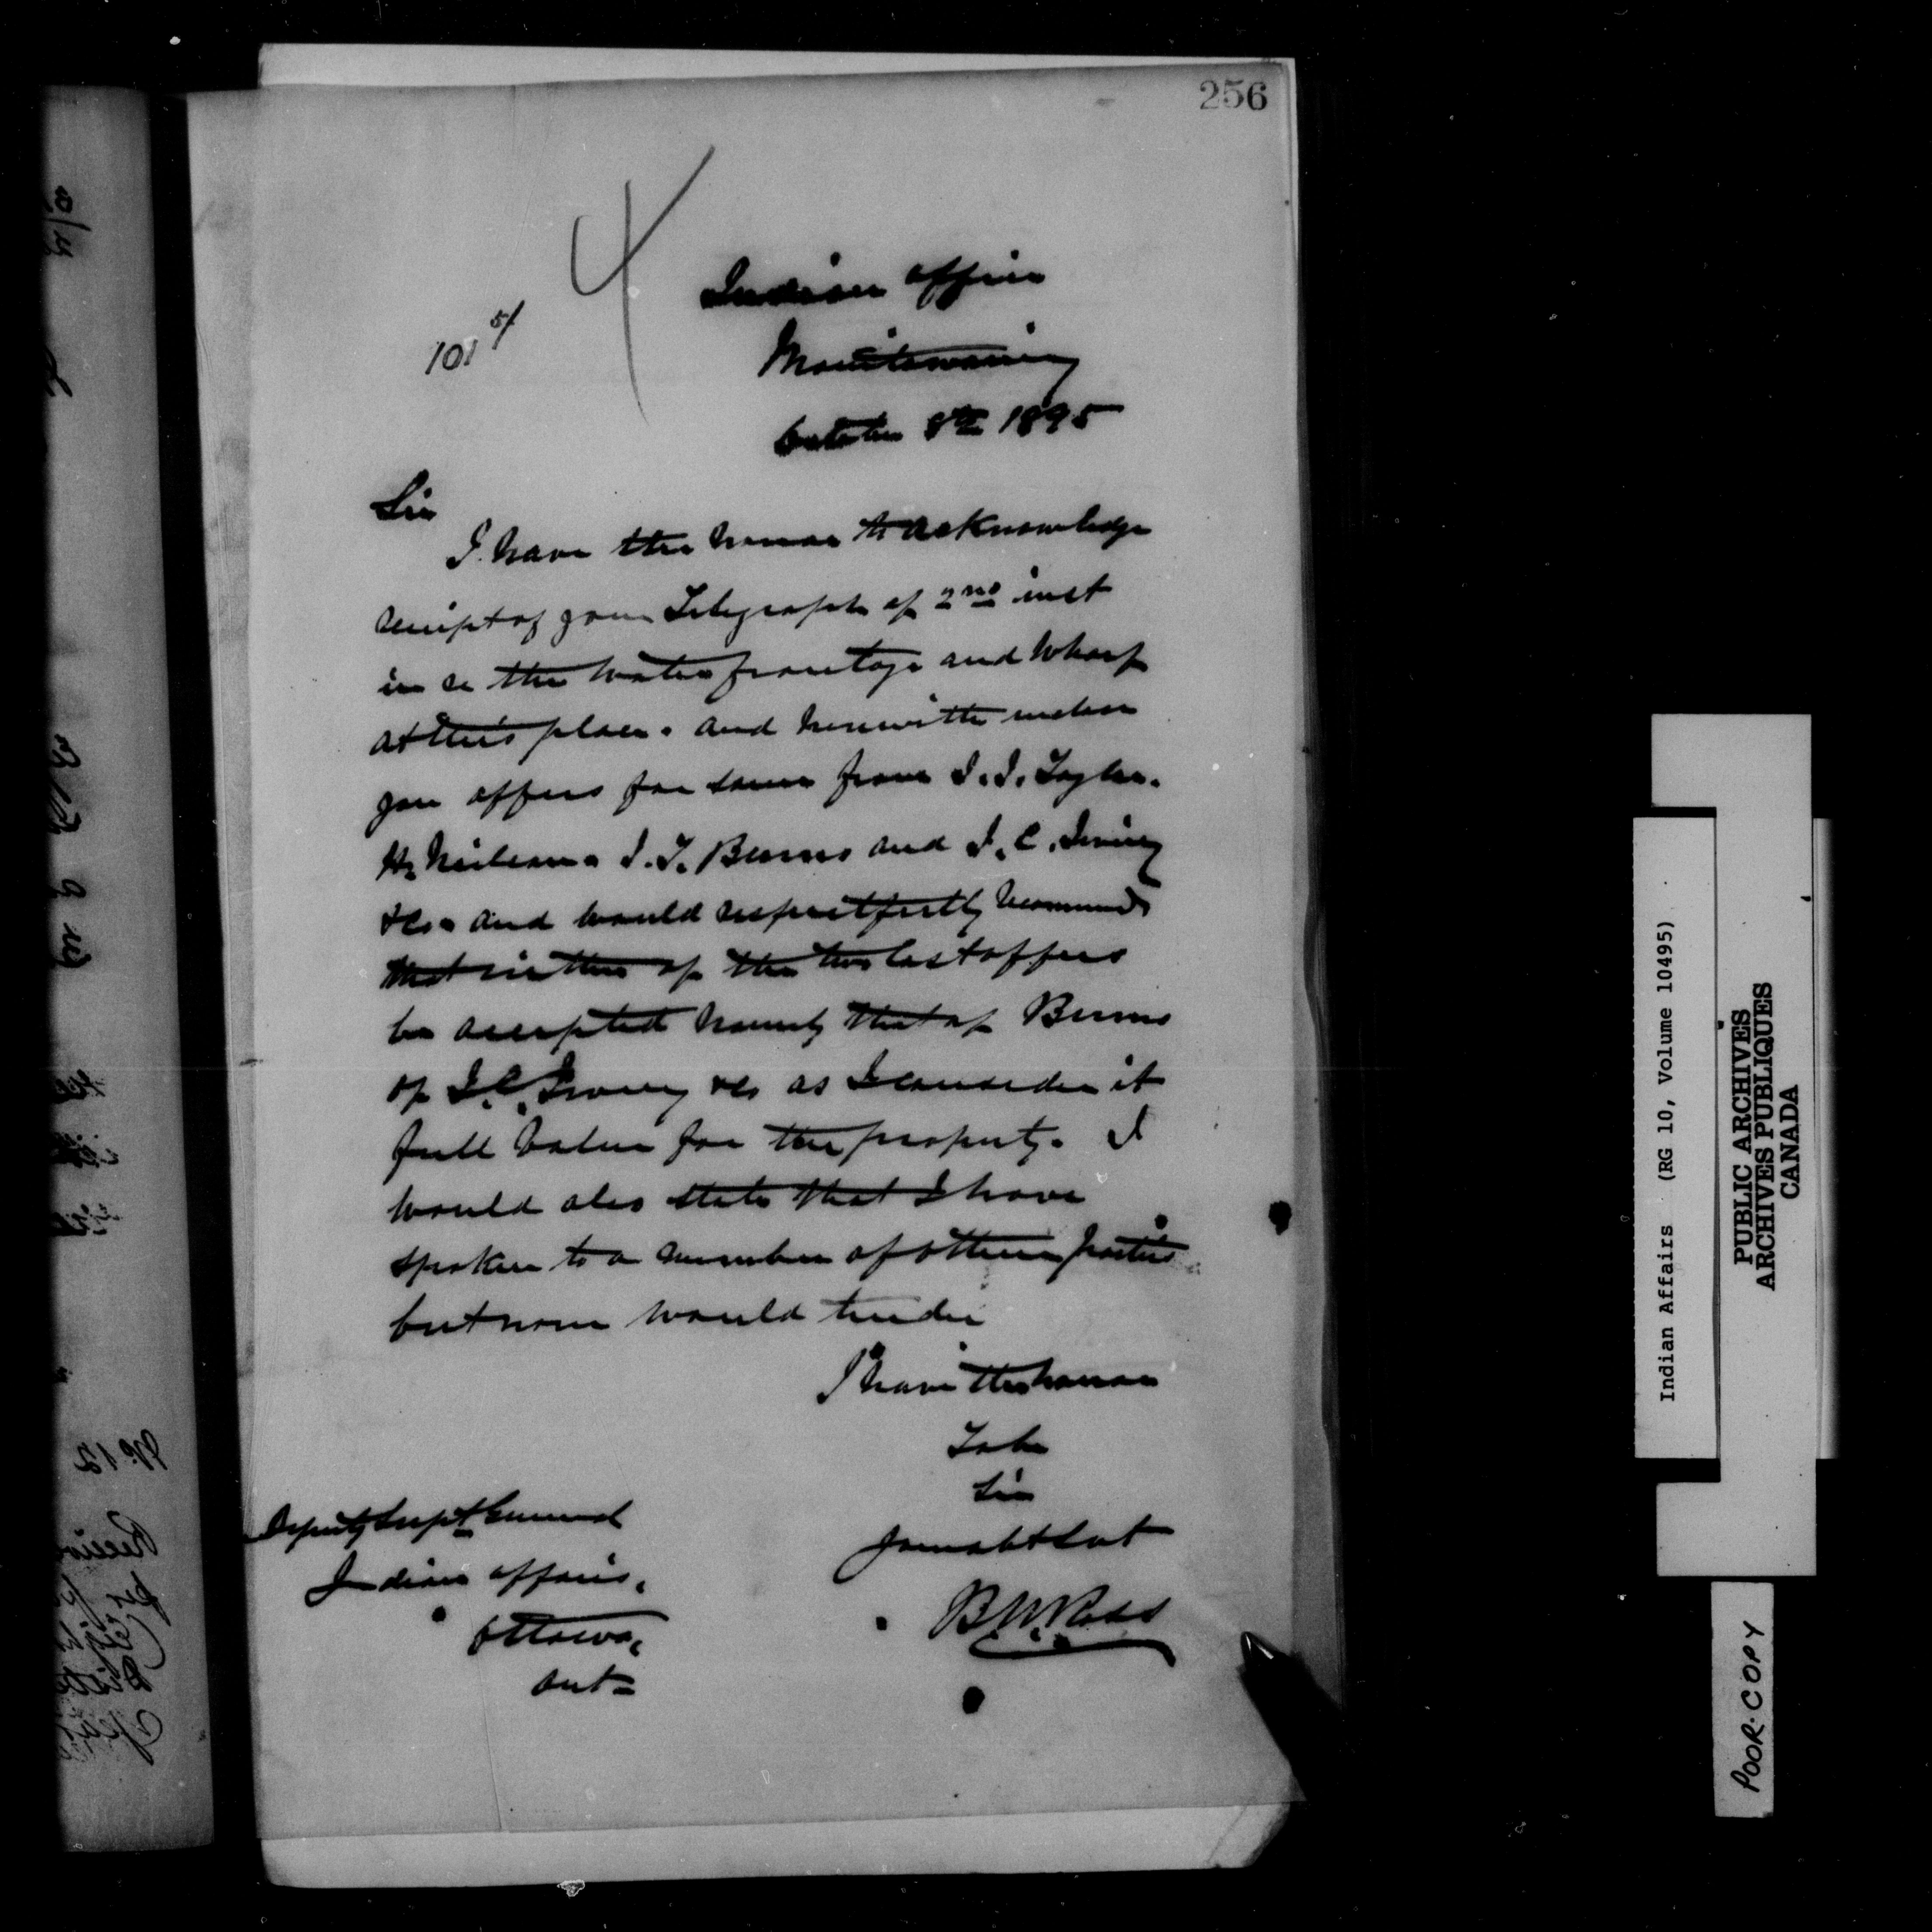 256
4
101 5/
Indian Office
Manitowaning
October 8th 1895
Sir
I have the honor to acknowledge
receipt of your Telegraph of 2nd inst
in re the water frontage and Wharf
at this place. and herewith enclose
you offers for same from T.J. Taylor.
H. Neilson. J.T. Burns and J.C. Irving
&Co. and would respectfully recommend
that either of the two last offers
be accepted namely that of Burns
or J.C. Irving &Co as I consider it
full value for the property. I
would also state that I have
spoken to a number of other parties
but none would tender
I have the honor
To be
Sir
Your obt Svt
B.W. Ross
Deputy Supt General
Indian Affairs.
Ottawa,
Ont-
Indian Affairs (RG 10, Volume 10495)
PUBLIC ARCHIVES
ARCHIVES PUBLIQUES
CANADA
POOR COPY